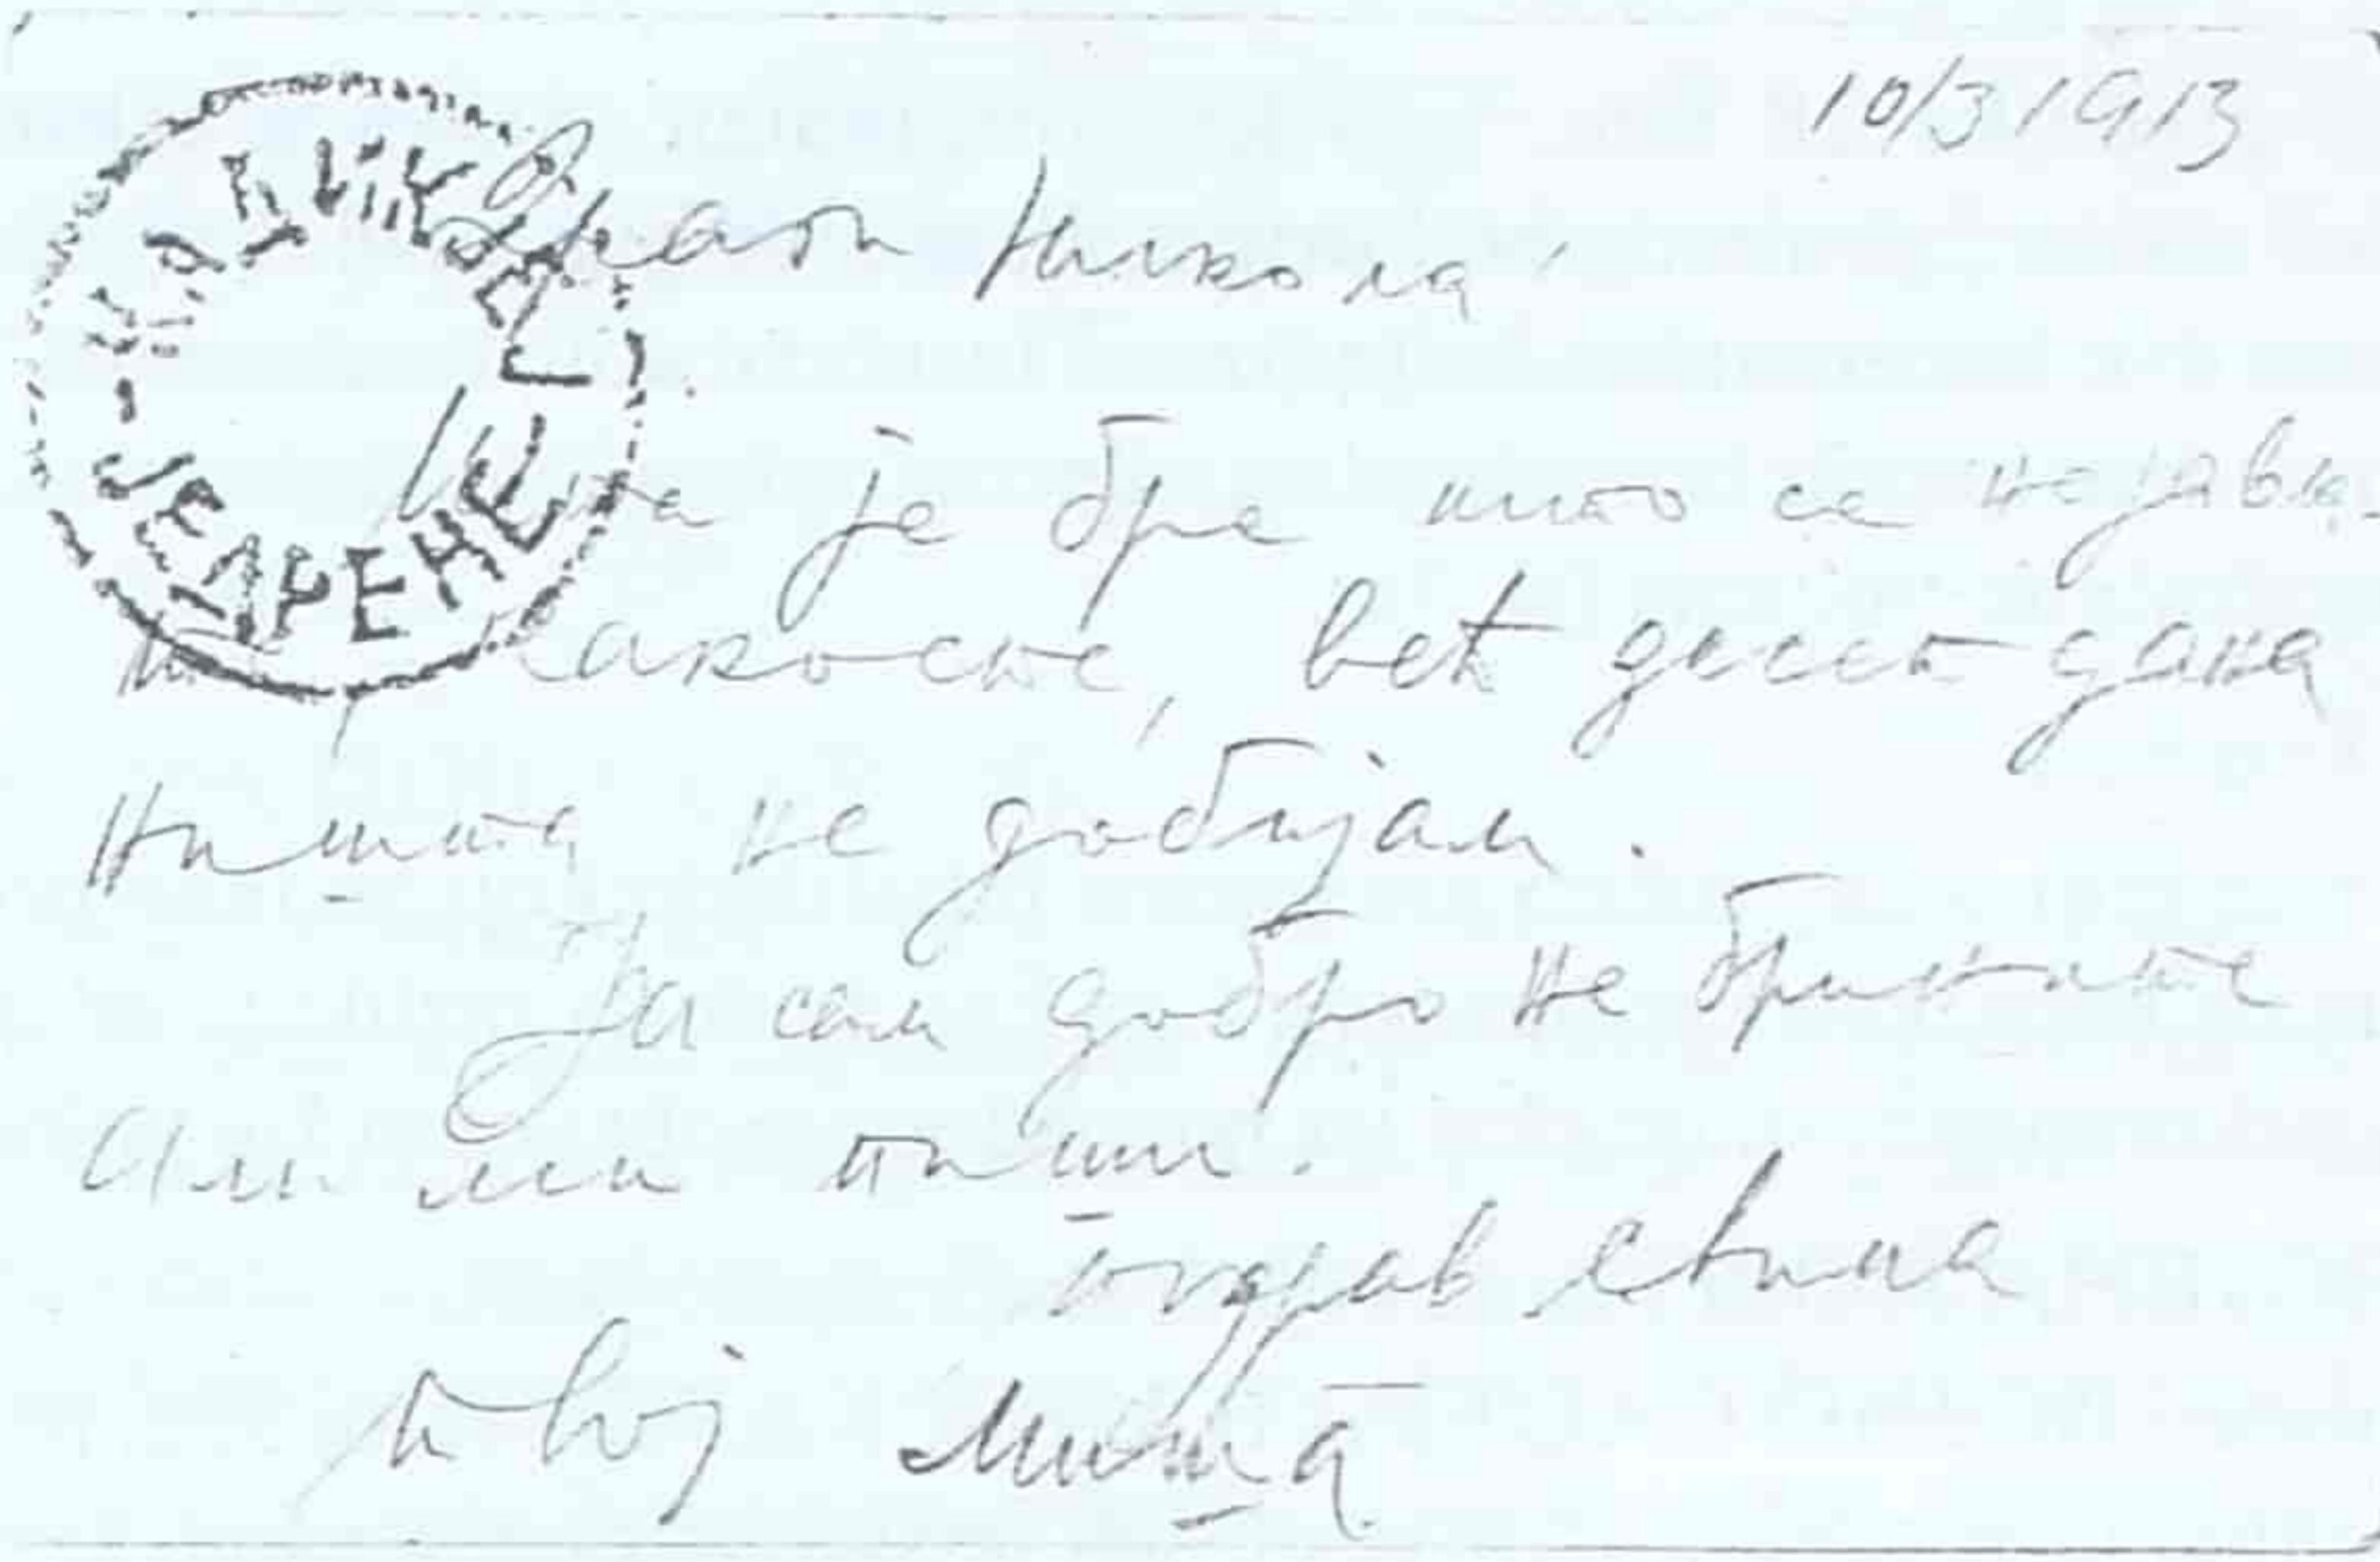 10/3 1913
Драги Никола,
Шта је бре што се не јавља-
те, какосте, већ десет дана
ништа не добијам.
Ја сам добро не брините
али ми пиши.
Поздрав свима
твој Миша